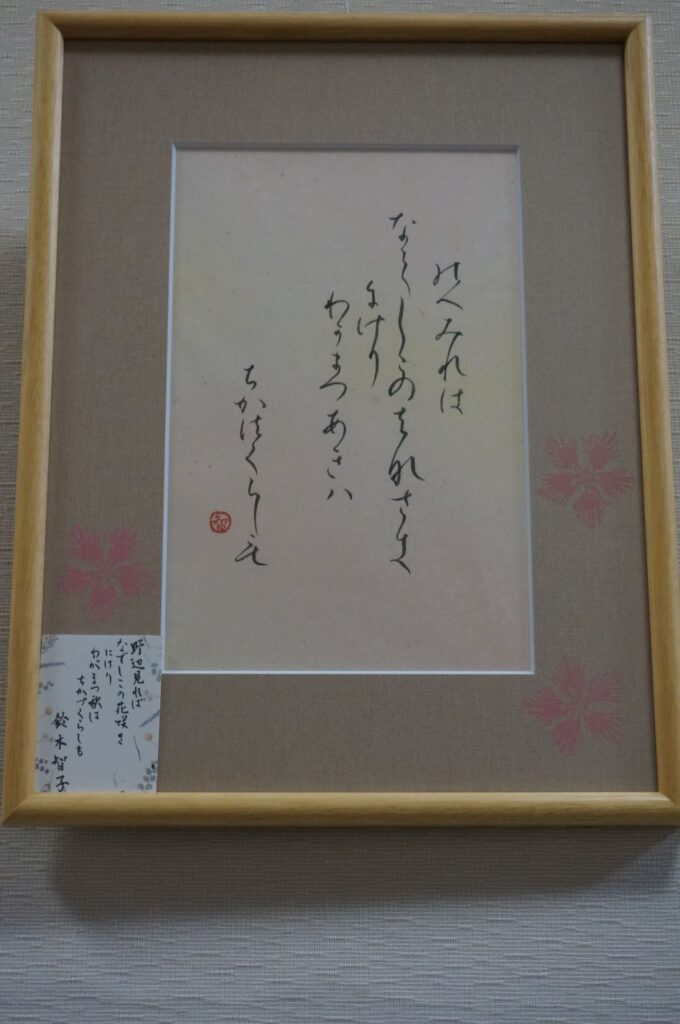 のへみれは
なてしこのはなさき
にけり
わかまつあきは
ちかつくらしも
野辺見れば
なでしこの花咲き
にけり
わがまつ秋は
ちかづくらしも
鈴木智子